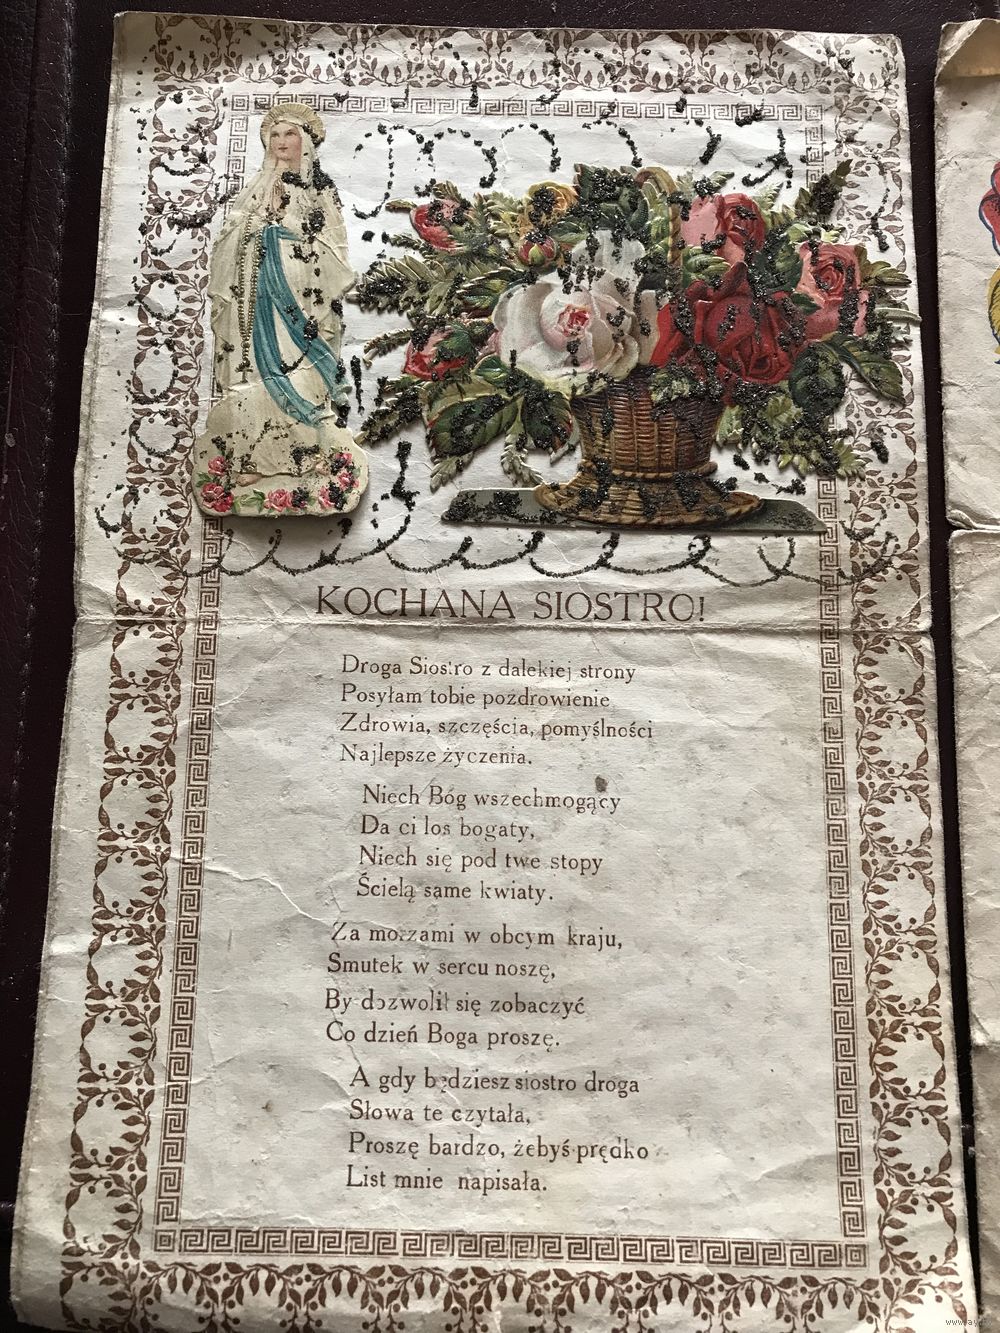 KOCHANA SIOSTRO!
Droga Siostro z dalekiej strony
Posyłam tobie pozdrowienie
Zdrowia, szczęścia, pomyślności
Najlepsze życzenia.
Niech Bóg wszechmogący
Da ci los bogaty,
Niech się pod twe stopy
Ścielą same kwiaty.
Za morzami w obcym kraju,
Smutek w sercu noszę,
By dozwolił się zobaczyć
Co dzień Boga proszę.
A gdy będziesz siostro droga
Słowa te czytała,
Proszę bardzo, żebyś prędko
List mnie napisała.